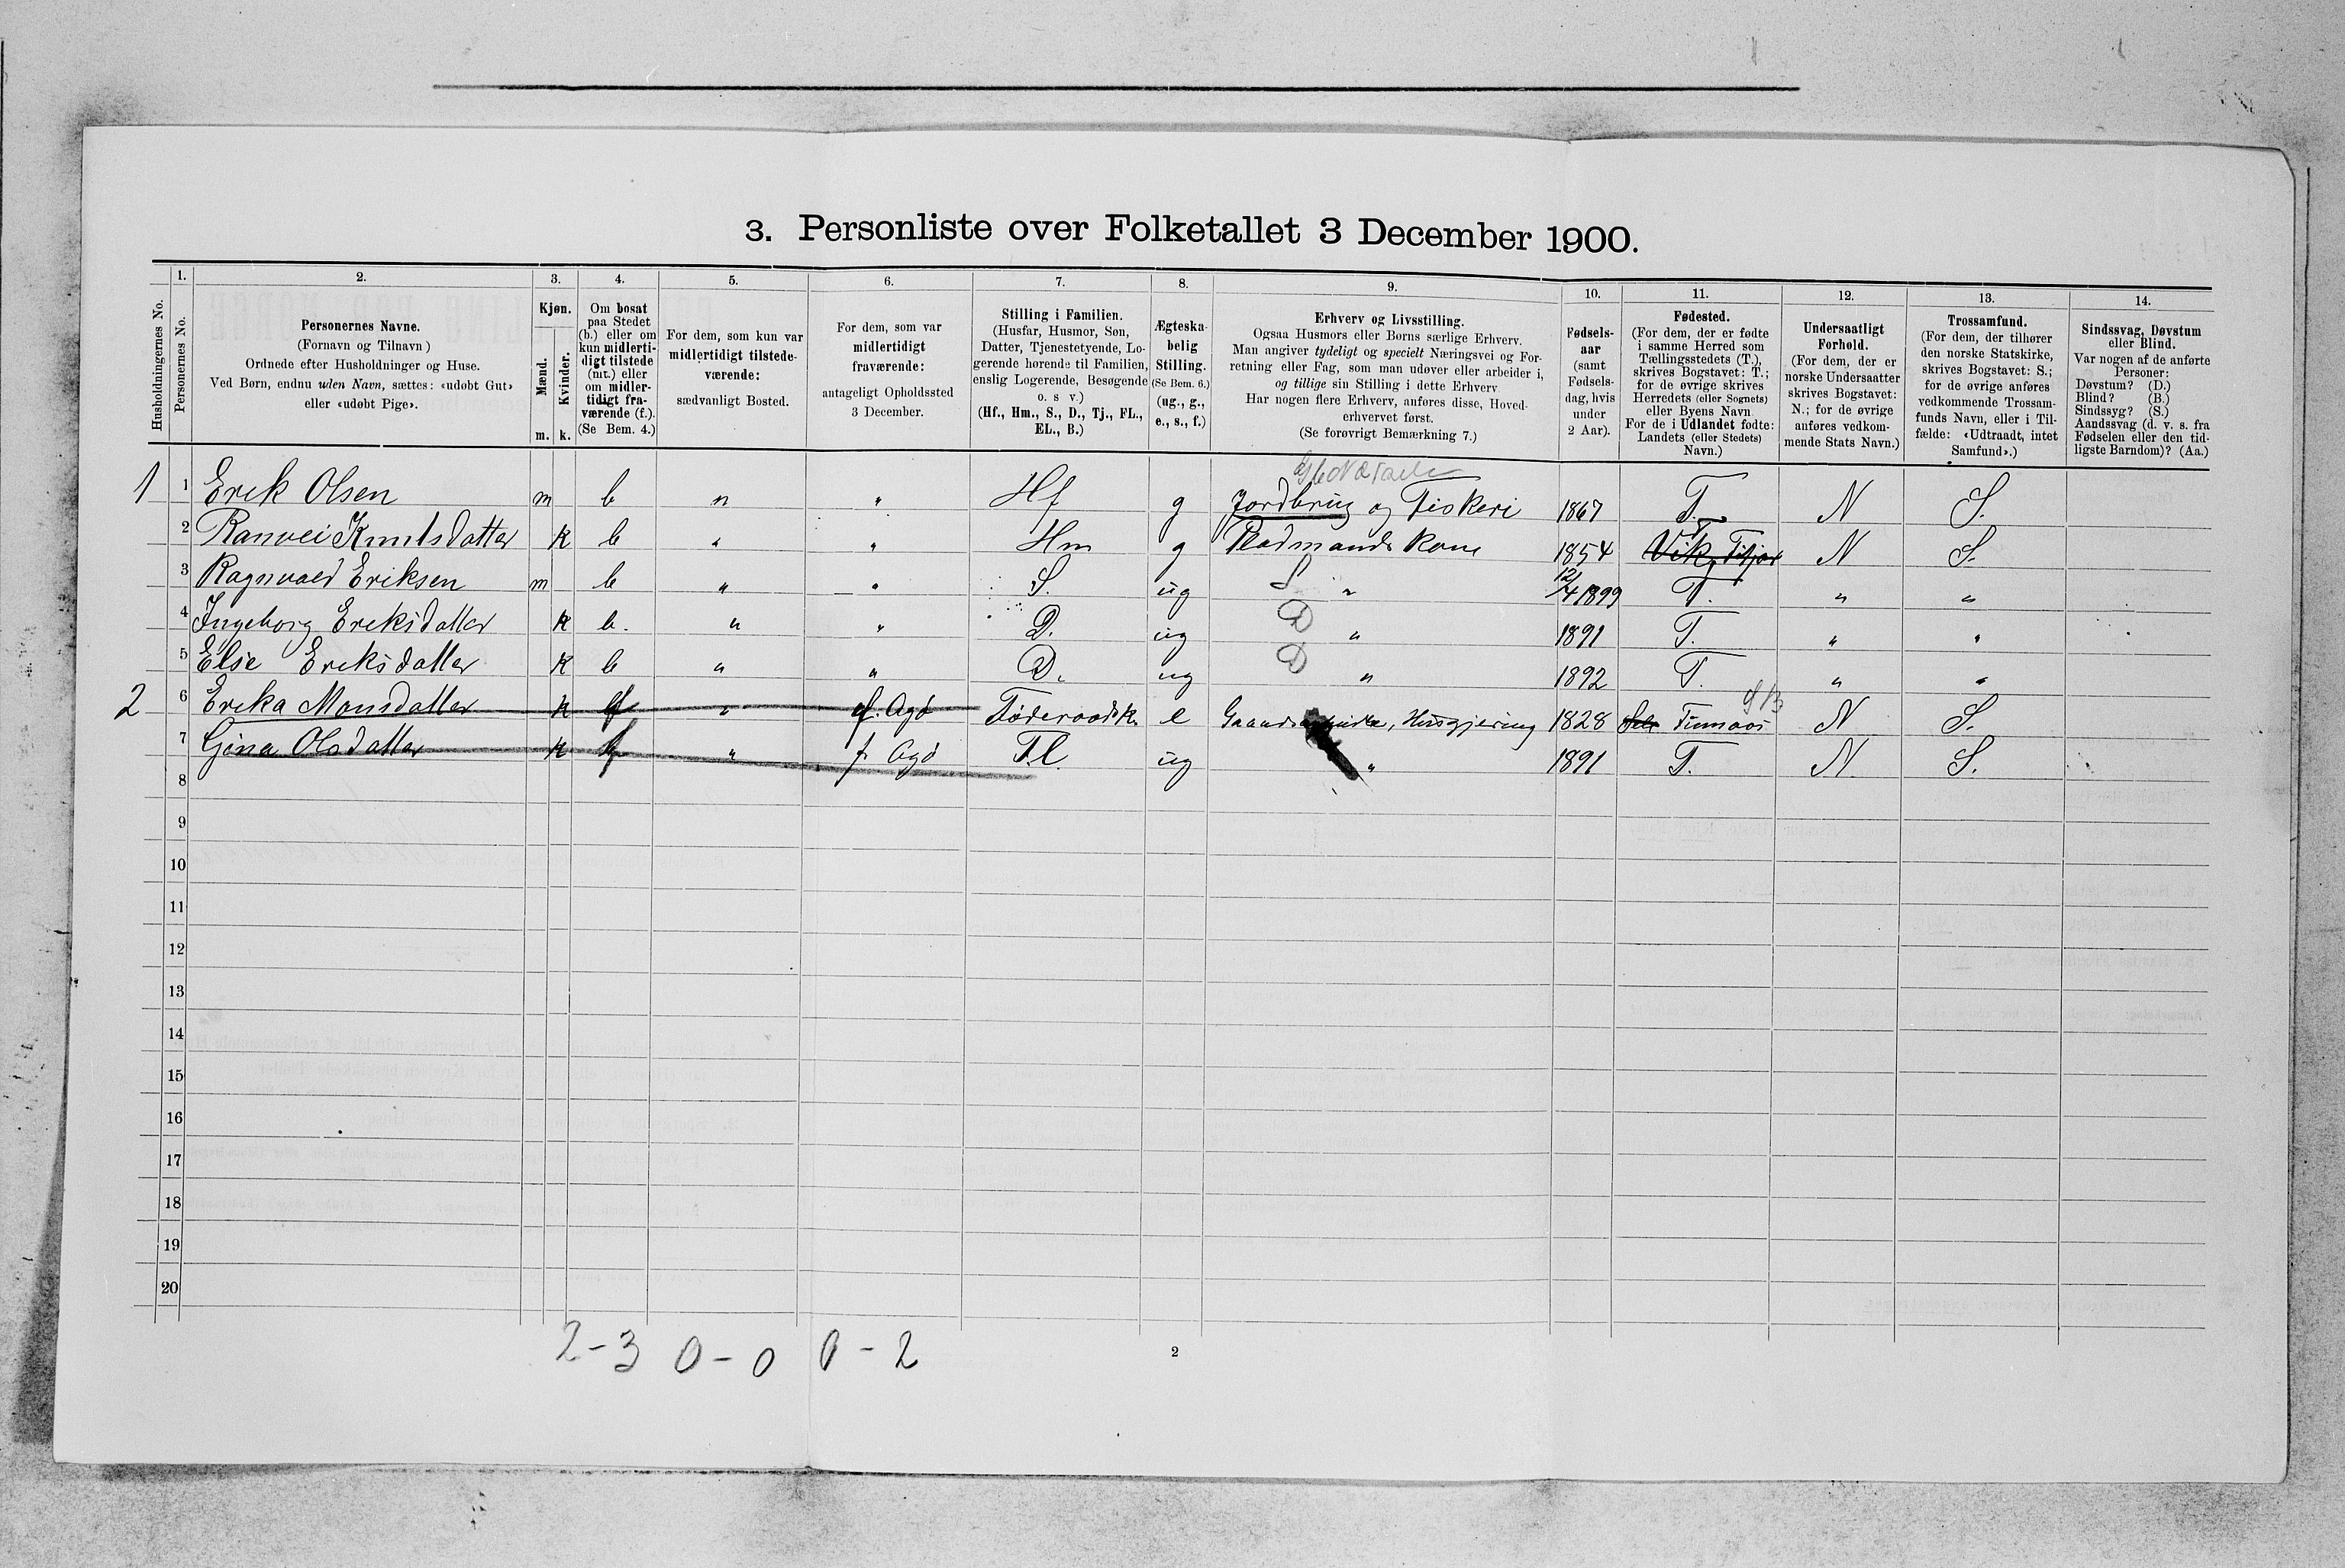 3. Personliste over Folketallet 3 December 1900.
Husholdningernes No.
1.
Personernes No.
2.
Personernes Navne.
(Fornavn og Tilnavn)
Ordnede efter Husholdninger og Huse.
Ved Børn, endnu uden Navn, sættes: «udøbt Gut»
eller «udøbt Pige».
3.
Kjøn.
Mænd.
Kvinder.
m. k.
4.
Om bosat
paa Stedet
(b.) eller om
kun midlerti-
digt tilstede
(mt.) eller
om midler-
tidigt fra-
værende (f.).
(Se Bem. 4.)
5.
For dem, som kun var
midlertidigt tilstede-
værende:
sædvanligt Bosted.
6.
For dem, som var
midlertidigt
fraværende:
antageligt Opholdssted
3 December.
7.
Stilling i Familien.
(Husfar, Husmor, Søn,
Datter, Tjenestetyende, Lo-
gerende hørende til Familien,
enslig Logerende, Besøgende
o. s v.)
(Hf., Hm., S., D., Tj., FL.,
EL., B.)
8.
Ægteska-
belig
Stilling.
(Se Bem. 6.)
(ug., g.,
e., s., f.)
9.
Erhverv og Livsstilling.
Ogsaa Husmors eller Børns særlige Erhverv.
Man angiver tydeligt og specielt Næringsvei og For-
retning eller Fag, som man udøver eller arbeider i,
og tillige sin Stilling i dette Erhverv.
Har nogen flere Erhverv, anføres disse, Hoved-
erhvervet først.
(Se forøvrigt Bemærkning 7.)
10.
Fødsels-
aar
(samt
Fødsels-
dag, hvis
under
2 Aar).
11.
Fødested.
(For dem, der er fødte
i samme Herred som
Tællingsstedets (T.),
skrives Bogstavet: T.;
for de øvrige skrives
Herredets (eller Sognets)
eller Byens Navn
For de i Udlandet fødte:
Landets (eller Stedets)
Navn.)
12.
Undersaatligt
Forhold.
(For dem, der er
norske Undersaatter
skrives Bogstavet:
N.; for de øvrige
anføres vedkom-
mende Stats Navn.)
13.
Trossamfund.
(For dem, der tilhører
den norske Statskirke,
skrives Bogstavet: S.;
for de øvrige anføres
vedkommende Trossam-
funds Navn, eller i Til-
fælde: «Udtraadt, intet
Samfund».)
14.
Sindssvag, Døvstum
eller Blind.
Var nogen af de anførte
Personer:
Døvstum? (D.)
Blind? (B.)
Sindssyg? (S.)
Aandssvag (d. v. s. fra
Fødselen eller den tid-
ligste Barndom)? (Aa.)
1 1 Erik Olsen m b " " Hf g Jordbrug og Fiskeri 1867 T. N S.
2 Ranvei Knutsdatter k b " " Hm g Kone 1854 T. Vik N S.
3 Ragnvald Eriksen m b " " S. ug S " 12/4 1899 T. " "
4 Ingeborg Eriksdatter k b. " " D. ug D " 1891 T. " "
5 Else Eriksdatter k b " " D. ug D " 1892 T. " "
2 6 Erika Monsdatter k f " f. Agø Føderaadsk. e Husgjerning 1828 N S.
7 Gina Olsdatter k f " f. Agø F.l. ug " 1891 T. N S.
8
9
10
11
12
13
14
15
16
17
18
19
20
2-3 0-0 0-2
2